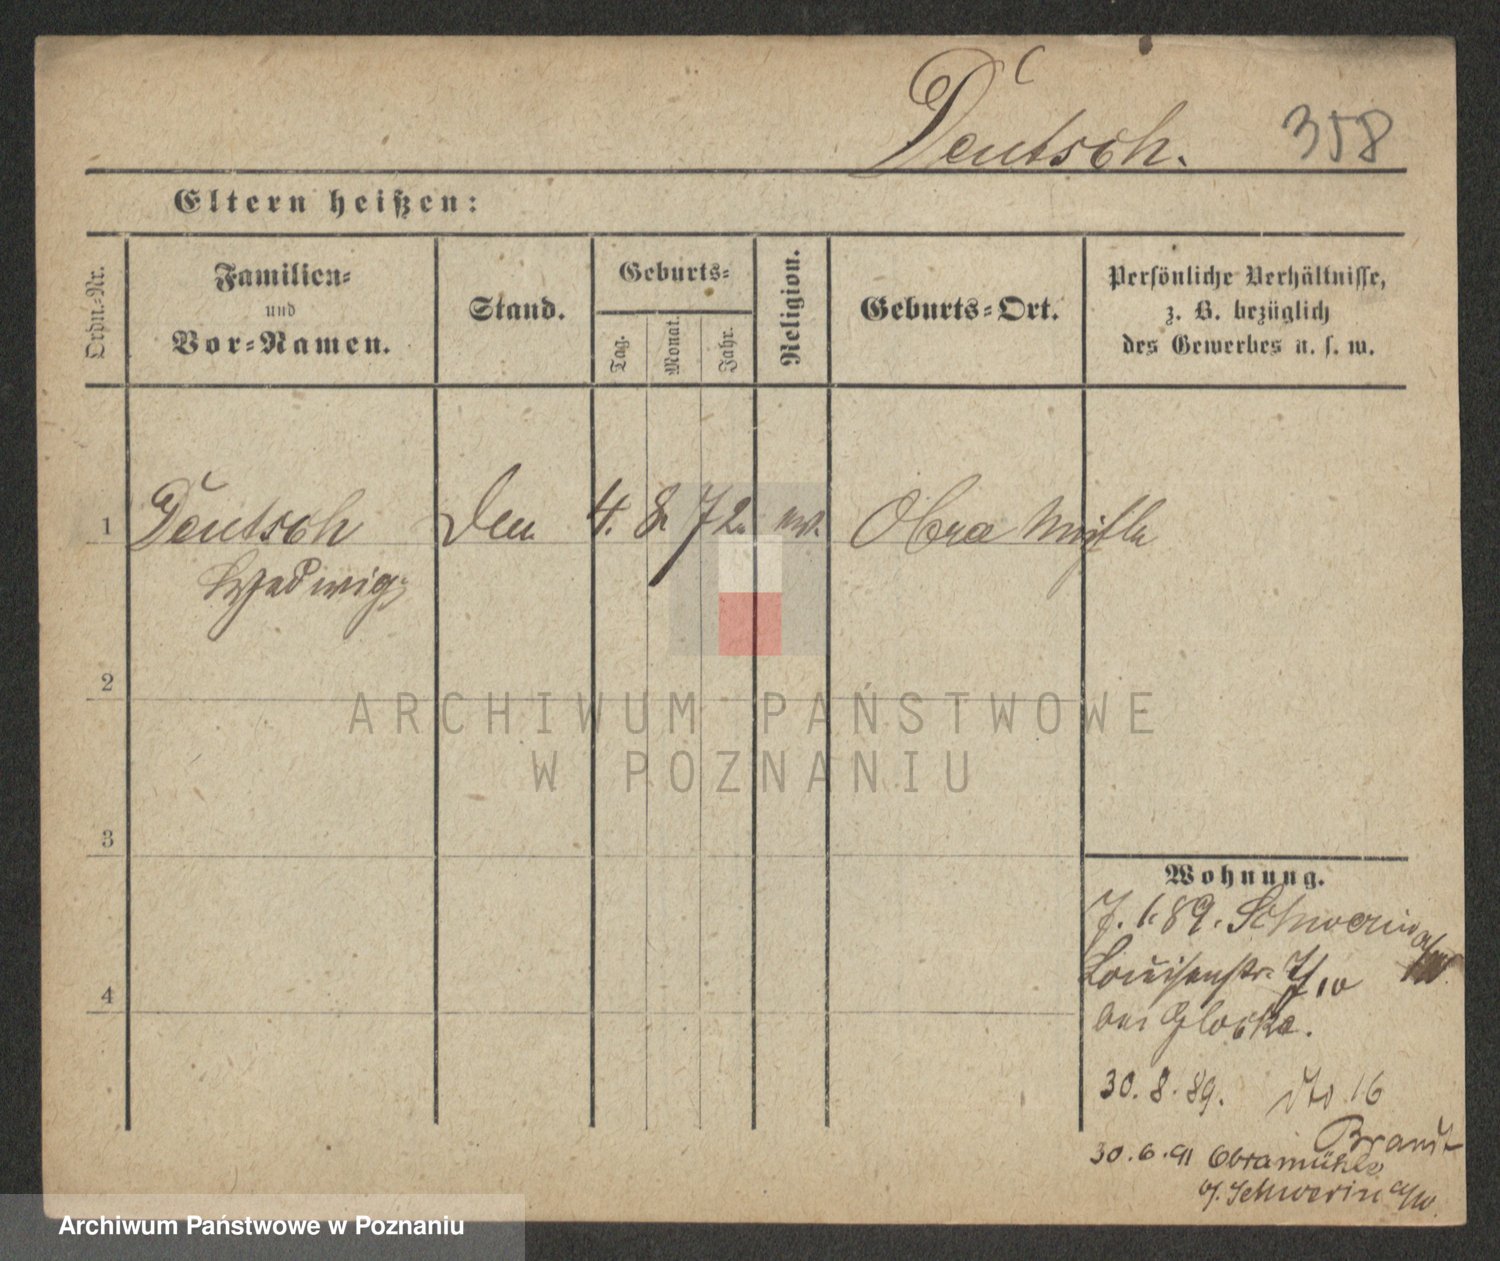 Deutsch.
358
Eltern heißen:
Ordn.-Nr.
Familien-
und
Vor-Namen.
Stand.
Geburts-
Tag.
Monat.
Jahr.
Religion.
Geburts-Ort.
Persönliche Verhältnisse,
z. B. bezüglich
des Gewerbes u. s. w.
1 Deutsch 4. 8. 72. ev. Obra Mühle
Hedwig
2
ARCHIWUM PAŃSTWOWE
W POZNANIU
3
Wohnung.
7. 1. 89. Schwerin a/W.
Louisenstr. 7/10
bei Glocke.
4
30. 8. 89. dto 16
Brandt
30. 6. 91 Obramühle
b/. Schwerin a/W.
Archiwum Państwowe w Poznaniu